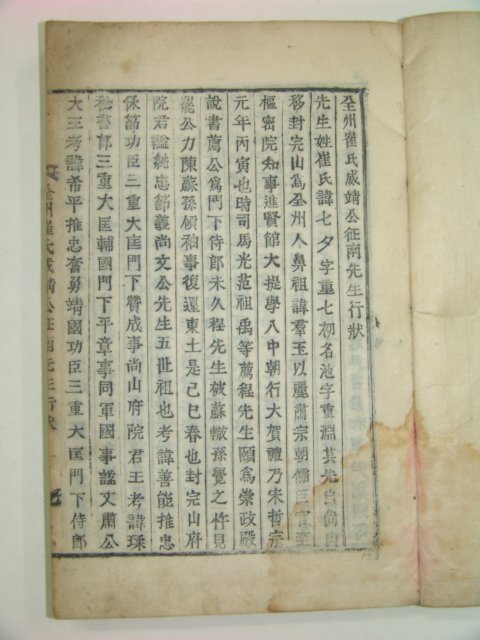 全州崔氏威靖公征南先生行狀
先生姓崔氏諱七夕字重七初名池字重淵其先自尚質
移封完山爲全州人鼻祖諱羣玉以麗肅宗朝儒臣官至
樞密院知事進賢館大提學入中朝行大賀禮乃宋哲宗
元年丙寅也時司馬光范祖禹等薦程先生頤爲崇政殿
說書薦公爲門下侍郎未久程先生破蘇轍孫覺之忤見
罷公力陳蘇孫領袖事復還東土是己巳春也封完山府
院君謚 忠節義尚文公先生五世祖也考諱善能推忠
保節功臣三重大匡門下贊成事尚山府院君王考諱琗
秘書郎三重大匡輔國門下平章事同軍國事謚文肅公
大王考諱希平推忠奮勇靖國功臣三重大匡門下侍郎
全州崔氏威靖公征南先生行狀